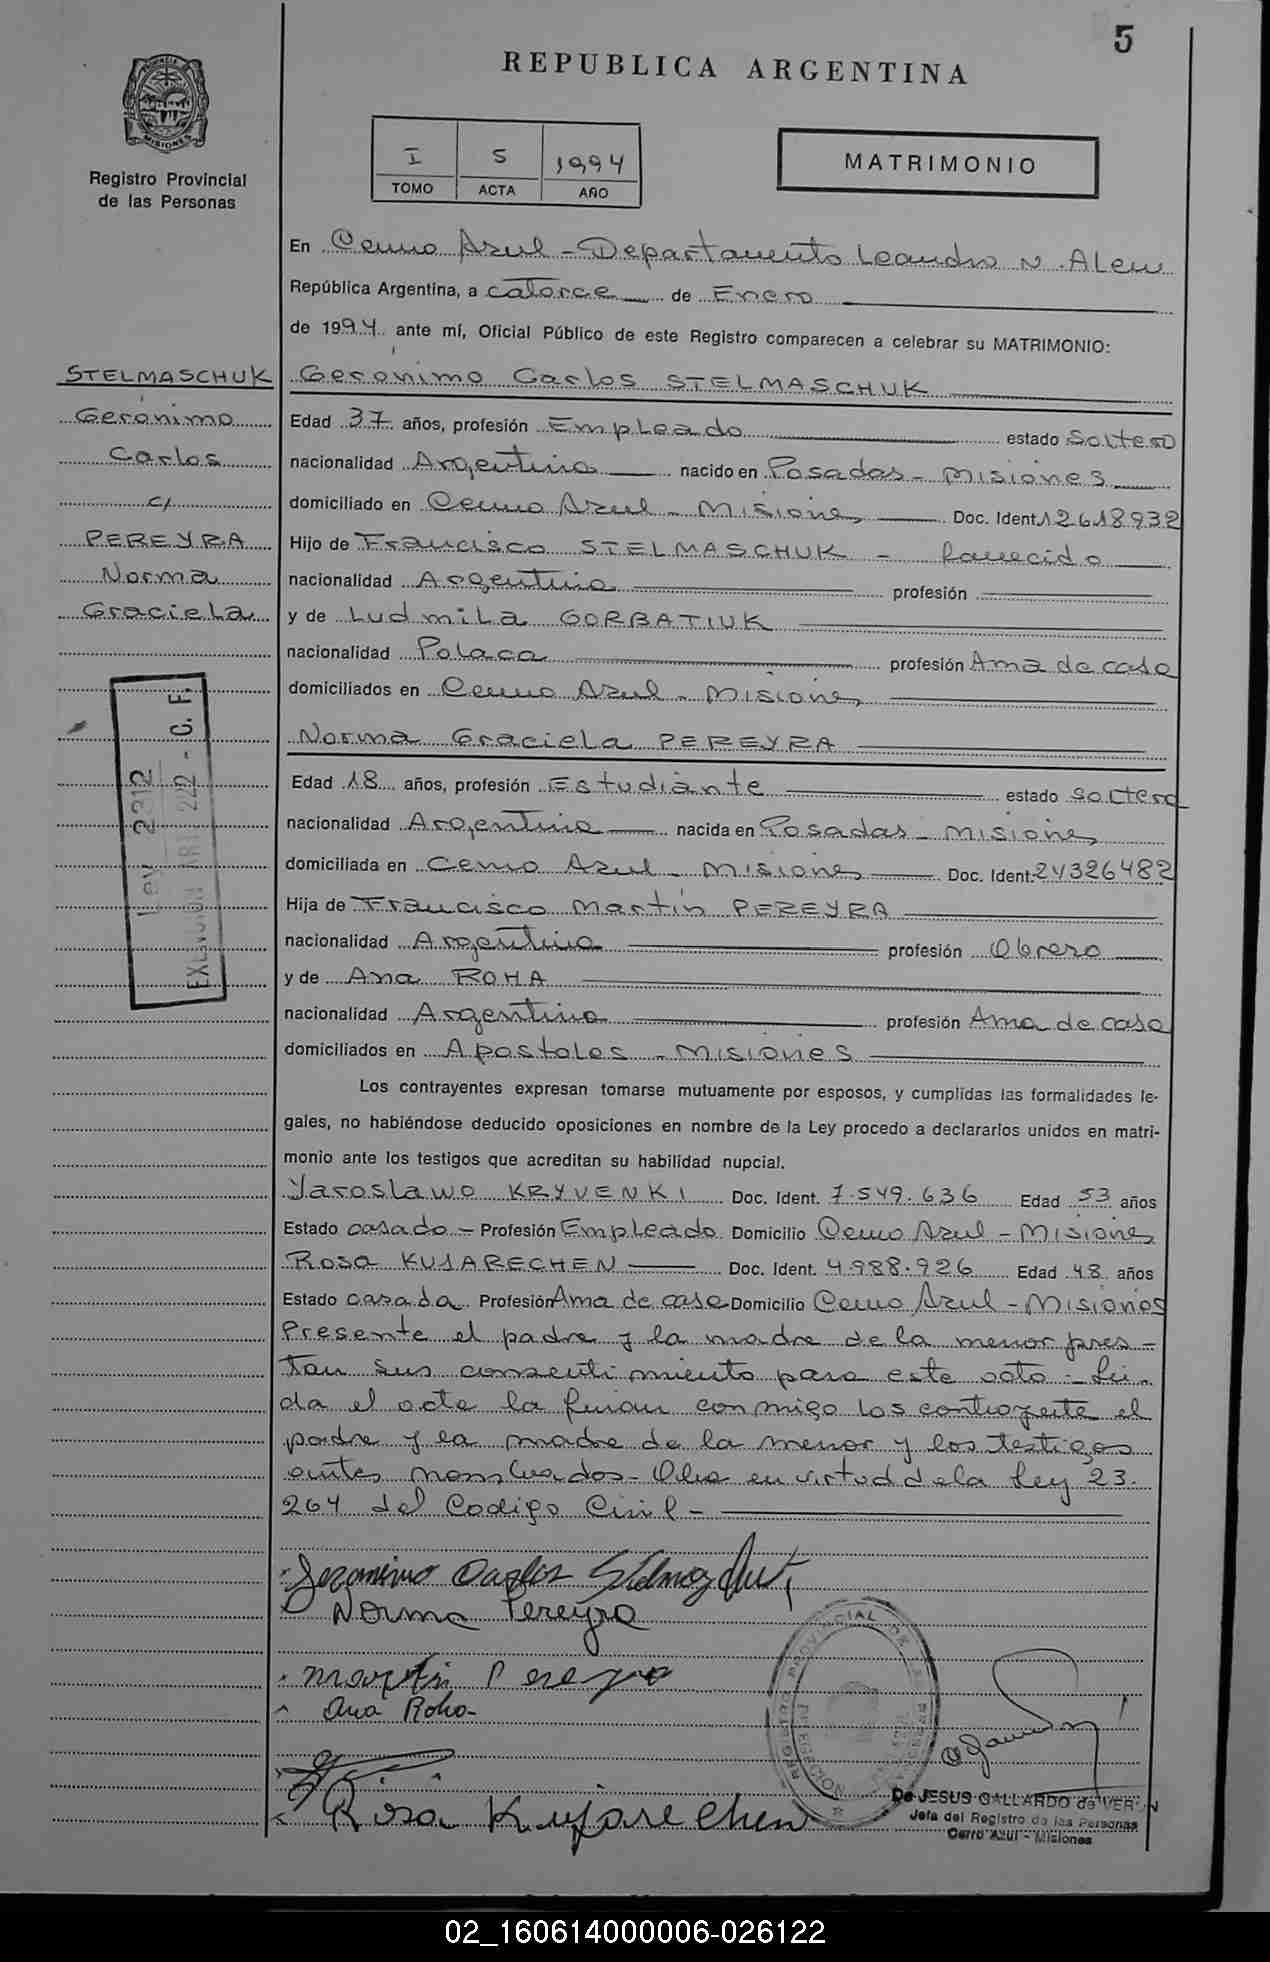 5
REPUBLICA ARGENTINA
MISIONES
Registro Provincial
de las Personas
I 5 1994
TOMO ACTA AÑO
MATRIMONIO
En Cerro Azul - Departamento Leandro N. Alem
República Argentina, a catorce de Enero
de 1994 ante mí, Oficial Público de este Registro comparecen a celebrar su MATRIMONIO:
STELMASCHUK
Gerónimo
Carlos
c/
PEREYRA
Norma
Graciela
Ley 2312
EXENCION ART 222 - C. F.
Gerónimo Carlos STELMASCHUK
Edad 37 años, profesión Empleado estado Soltero
nacionalidad Argentina nacido en Posadas - Misiones
domiciliado en Cerro Azul - Misiones Doc. Ident. 12618932
Hijo de Francisco STELMASCHUK - Fallecido
nacionalidad Argentino profesión
y de Ludmila GORBATIUK
nacionalidad Polaca profesión Ama de casa
domiciliados en Cerro Azul - Misiones
Norma Graciela PEREYRA
Edad 18 años, profesión Estudiante estado Soltera
nacionalidad Argentina nacida en Posadas - Misiones
domiciliada en Cerro Azul - Misiones Doc. Ident. 24326482
Hija de Francisco Martín PEREYRA
nacionalidad Argentino profesión Obrero
y de Ana ROHA
nacionalidad Argentina profesión Ama de casa
domiciliados en Apostoles - Misiones
Los contrayentes expresan tomarse mutuamente por esposos, y cumplidas las formalidades le-
gales, no habiéndose deducido oposiciones en nombre de la Ley procedo a declararlos unidos en matri-
monio ante los testigos que acreditan su habilidad nupcial.
Yaroslawo KRYVENKI Doc. Ident. 7.549.636 Edad 53 años
Estado casado - Profesión Empleado Domicilio Cerro Azul - Misiones
Rosa KUJARECHEN Doc. Ident. 4.988.926 Edad 48 años
Estado casada Profesión Ama de casa Domicilio Cerro Azul - Misiones
Presente el padre y la madre de la menor pres-
tan sus consentimiento para este acto - Leí-
da el acta la firman conmigo los contrayente el
padre y la madre de la menor y los testigos
antes nombrados - en virtud de la Ley 23.
264 del Codigo Civil -
Geronimo Carlos Stelmaschuk
Norma Pereyra
Martin Pereyra
Ana Roha
Rosa Kujarechen
REGISTRO PROVINCIAL DE LAS PERSONAS
De JESUS GALLARDO de VERON
Jefa del Registro de las Personas
Cerro Azul - Misiones
02_160614000006-026122